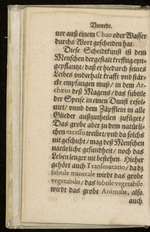 Vorrede.
ner auß einem Chao oder Wasser
durchs Wort geschehen hat.
Diese Scheidkunst ist dem
Menschen dergestalt treffling ein-
gepflantzt, daß er hiedurch seines
Leibes underhalt trafft und stär-
cke empfangen muß, in dem Ar-
chæus deß Magens, das subtile
der Speise in einen Dunst resol-
uirt, vnnd dem Zäpfflein an alle
Glieder außzutheilen zufüget,
Das grobe aber zu dem natürli-
chen außtreibet, vnd da solchs
nit geschicht, mag deß Menschen
natürliche gesundtheit, noch das
Leben lenger nit bestehen. Hieher
gehört auch Transmutatio, da das
subtile minerale wirdt das grobe
vegetabile, das subtile vegetabile
wirdt das grobe Animale, also
auch